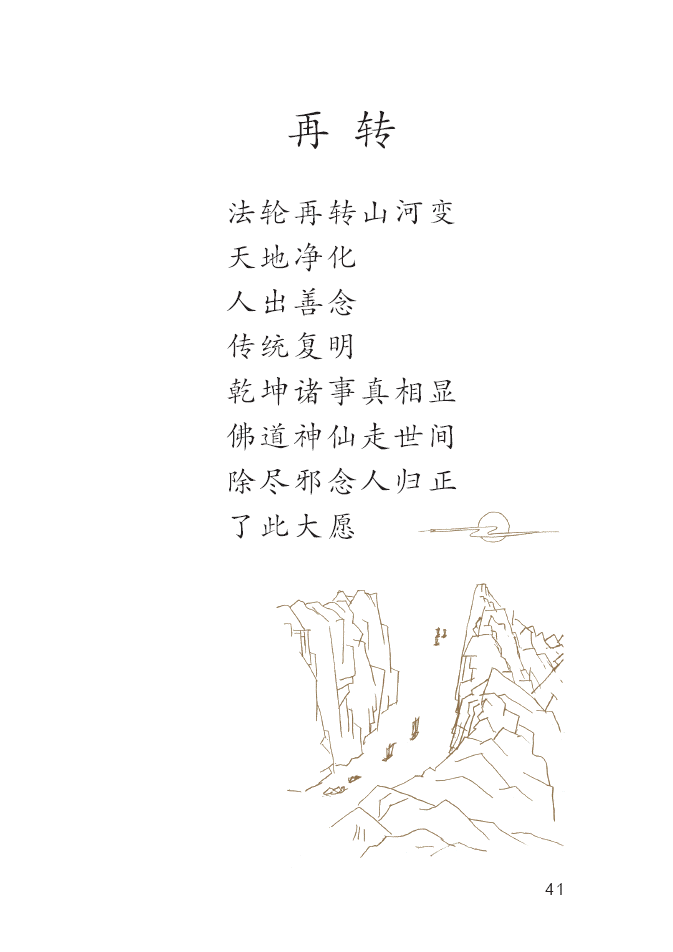 再 转
法轮再转山河变
天地净化
人出善念
传统复明
乾坤诸事真相显
佛道神仙走世间
除尽邪念人归正
了此大愿
41